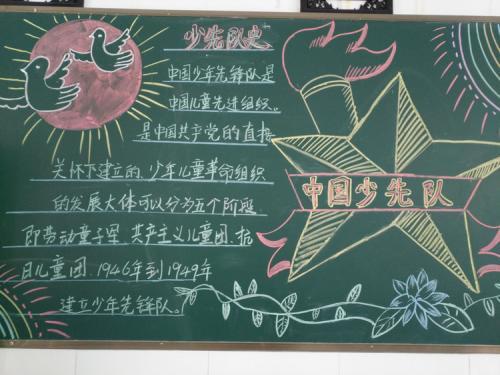 少先队史
中国少年先锋队是
中国儿童先进组织。
是中国共产党的直接
关怀下建立的、少年儿童革命组织
的发展大体可以分为五个阶段
即劳动童子军、共产主义儿童团、抗
日儿童团、1946年到1949年
建立少年先锋队。
中国少先队